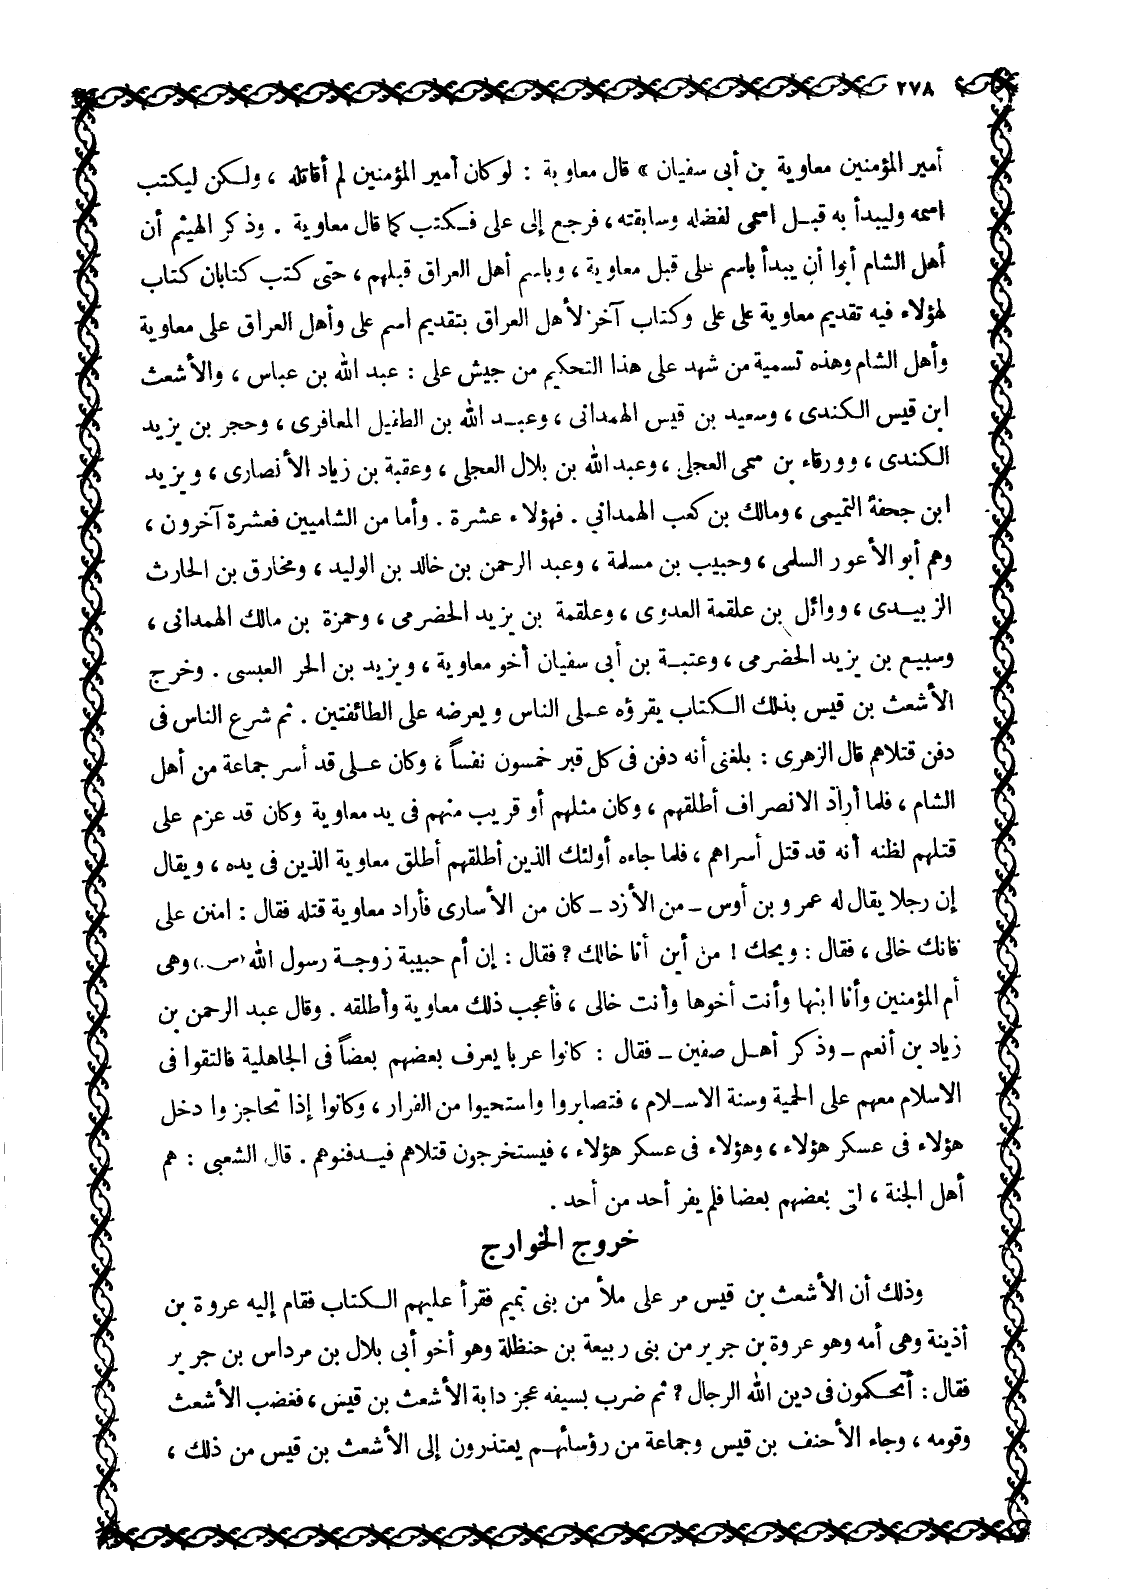 ٢٧٨
أمير المؤمنين معاوية بن أبى سفيان » قال معاوية : لو كان أمير المؤمنين لم أقاتله ، ولـكن ليكتب
اسمه وليبدأ به قبـل اسمى لفضله وسابقته ، فرجع إلى على فـكتب كما قال معاوية . وذكر الهيثم أن
أهل الشام أبوا أن يبدأ باسم على قبل معاوية ، وباسم أهل العراق قبلهم ، حتى كتب كتابان كتاب
لهؤلاء فيه تقديم معاوية على على وكتاب آخر لأهل العراق بتقديم اسم على وأهل العراق على معاوية
وأهل الشام وهذه تسمية من شهد على هذا التحكيم من جيش على : عبد الله بن عباس ، والأشعث
ابن قيس الـكندى ، وسعيد بن قيس الهمدانى ، وعبـد الله بن الطفيل المعافرى ، وحجر بن يزيد
الـكندى ، وورقاء بن سمى العجلى ، وعبد الله بن بلال العجلى ، وعقبة بن زياد الأنصارى ، ويزيد
ابن جحفة التميمى ، ومالك بن كعب الهمداني . فهؤلاء عشرة . وأما من الشاميين فعشرة آخرون ،
وهم أبو الأعور السلمى ، وحبيب بن مسلمة ، وعبد الرحمن بن خالد بن الوليد ، ومخارق بن الحارث
الزبيـدى ، ووائل بن علقمة العدوى ، وعلقمة بن يزيد الحضرمى ، وحمزة بن مالك الهمدانى ،
وسبيع بن يزيد الحضرمى ، وعتبـة بن أبى سفيان أخو معاوية ، ويزيد بن الحر العبسى . وخرج
الأشعث بن قيس بذلك الـكتاب يقرؤه عـلى الناس ويعرضه على الطائفتين . ثم شرع الناس فى
دفن قتلاهم قال الزهرى : بلغنى أنه دفن فى كل قبر خمسون نفساً ، وكان عـلى قد أسر جماعة من أهل
الشام ، فلما أراد الانصراف أطلقهم ، وكان مثلهم أو قريب منهم فى يد معاوية وكان قد عزم على
قتلهم لظنه أنه قد قتل أسراهم ، فلما جاءه أولئك الذين أطلقهم أطلق معاوية الذين فى يده ، ويقال
إن رجلا يقال له عمرو بن أوس ـ من الأزد ـ كان من الأسارى فأراد معاوية قتله فقال : امنن على
فانك خالى ، فقال : ويحك ! من أين أنا خالك ? فقال : إن أم حبيبة زوجـة رسول الله (ص.) وهى
أم المؤمنين وأنا ابنها وأنت أخوها وأنت خالى ، فأعجب ذلك معاوية وأطلقه . وقال عبد الرحمن بن
زياد بن أنعم ـ وذكر أهـل صفين ـ فقال : كانوا عربا يعرف بعضهم بعضاً فى الجاهلية فالتقوا فى
الاسلام معهم على الحمية وسنة الاسـلام ، فتصابروا واستحيوا من الفرار ، وكانوا إذا تحاجزوا دخل
هؤلاء فى عسكر هؤلاء ، وهؤلاء فى عسكر هؤلاء ، فيستخرجون قتلاهم فيـدفنوهم . قال الشعبى : هم
أهل الجنة ، لقى بعضهم بعضا فلم يفر أحد من أحد .
خروج الخوارج
وذلك أن الأشعث بن قيس مر على ملأ من بنى تميم فقرأ عليهم الـكتاب فقام إليه عروة بن
أذينة وهى أمه وهو عروة بن جرير من بنى ربيعة بن حنظلة وهو أخو أبى بلال بن مرداس بن جرير
فقال : أتحـكمون فى دين الله الرجال ? ثم ضرب بسيفه عجز دابة الأشعث بن قيس ، فغضب الأشعث
وقومه ، وجاء الأحنف بن قيس وجماعة من رؤسائهـم يعتذرون إلى الأشعث بن قيس من ذلك ،